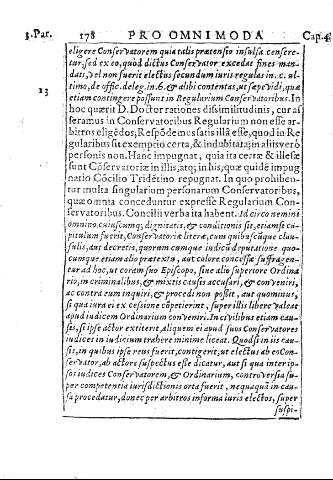 3. Par. 178 PRO OMNIMODA Cap. 4.
eligere Conservatorem quia talis prætensio insulsa censere-
tur, sed ex eo, quòd dictus Conservator excedat fines man-
dati, vel non fuerit electus secundum iuris regulas in. c. ul-
timo, de offic. deleg. in. 6. & alibi contentas, ut sæpe vidi, quæ
etiam contingere possunt in Regularium Conservatoribus. In
13
hoc quærit D. Doctor rationes dissimilitudinis, cur as
seramus in Conservatoribus Regularium non esse ar-
bitros eligẽdos; Respõdemus satis illã esse, quod in Re
gularibus sit exemptio certa, & indubitata, in aliis verò
personis non. Hanc impugnat, quia ita certæ & illesæ
sunt Cõservatoriæ in illis, atq; in his, quæ quidẽ impug
natio Cõcilio Tridẽtino repugnat. In quo prohiben-
tur multa singularum personarum Conservatoribus,
quæ omnia conceduntur expressè Regularium Con-
servatoribus. Concilii verba ita habent. Ad circo nemini
omnino cuiuscumq; dignitatis, & conditionis sit, etiamsi ca-
pitulum fuerit, Conservatoriæ literæ, cum quibuscũque clau-
sulis, aut decretis, quorum cumque iudicũ deputatione quo-
cumque etiam alio prætextu, aut colore concessæ suffragen-
tur ad hoc, ut coram suo Episcopo, sive alio superiore Ordina
rio, in criminalibus, & mixtis causis accusari, & conveniri,
ac contra eum inquiri, & procedi non possit, aut quominus,
si qua iura ei ex cessione cõpetierint, super illis liberè valeat
apud iudicem Ordinarium conveniri. In civilibus etiam cau-
sis, si ipse actor extiterit, aliquem ei apud suos Conservatores
iudices in iudicium trahere minimè liceat. Quod si in iis cau-
sis, in quibus ipse reus fuerit, contigerit, ut electus ab eo Con-
servator, ab actore suspectus esse dicatur, aut si qua inter ip-
sos iudices Conservatorem, & Ordinarium, controversia su-
per competentia iurisdictionis orta fuerit, nequaquã in cau-
sa procedatur, donec per arbitros informa iuris electos, super
suspi-